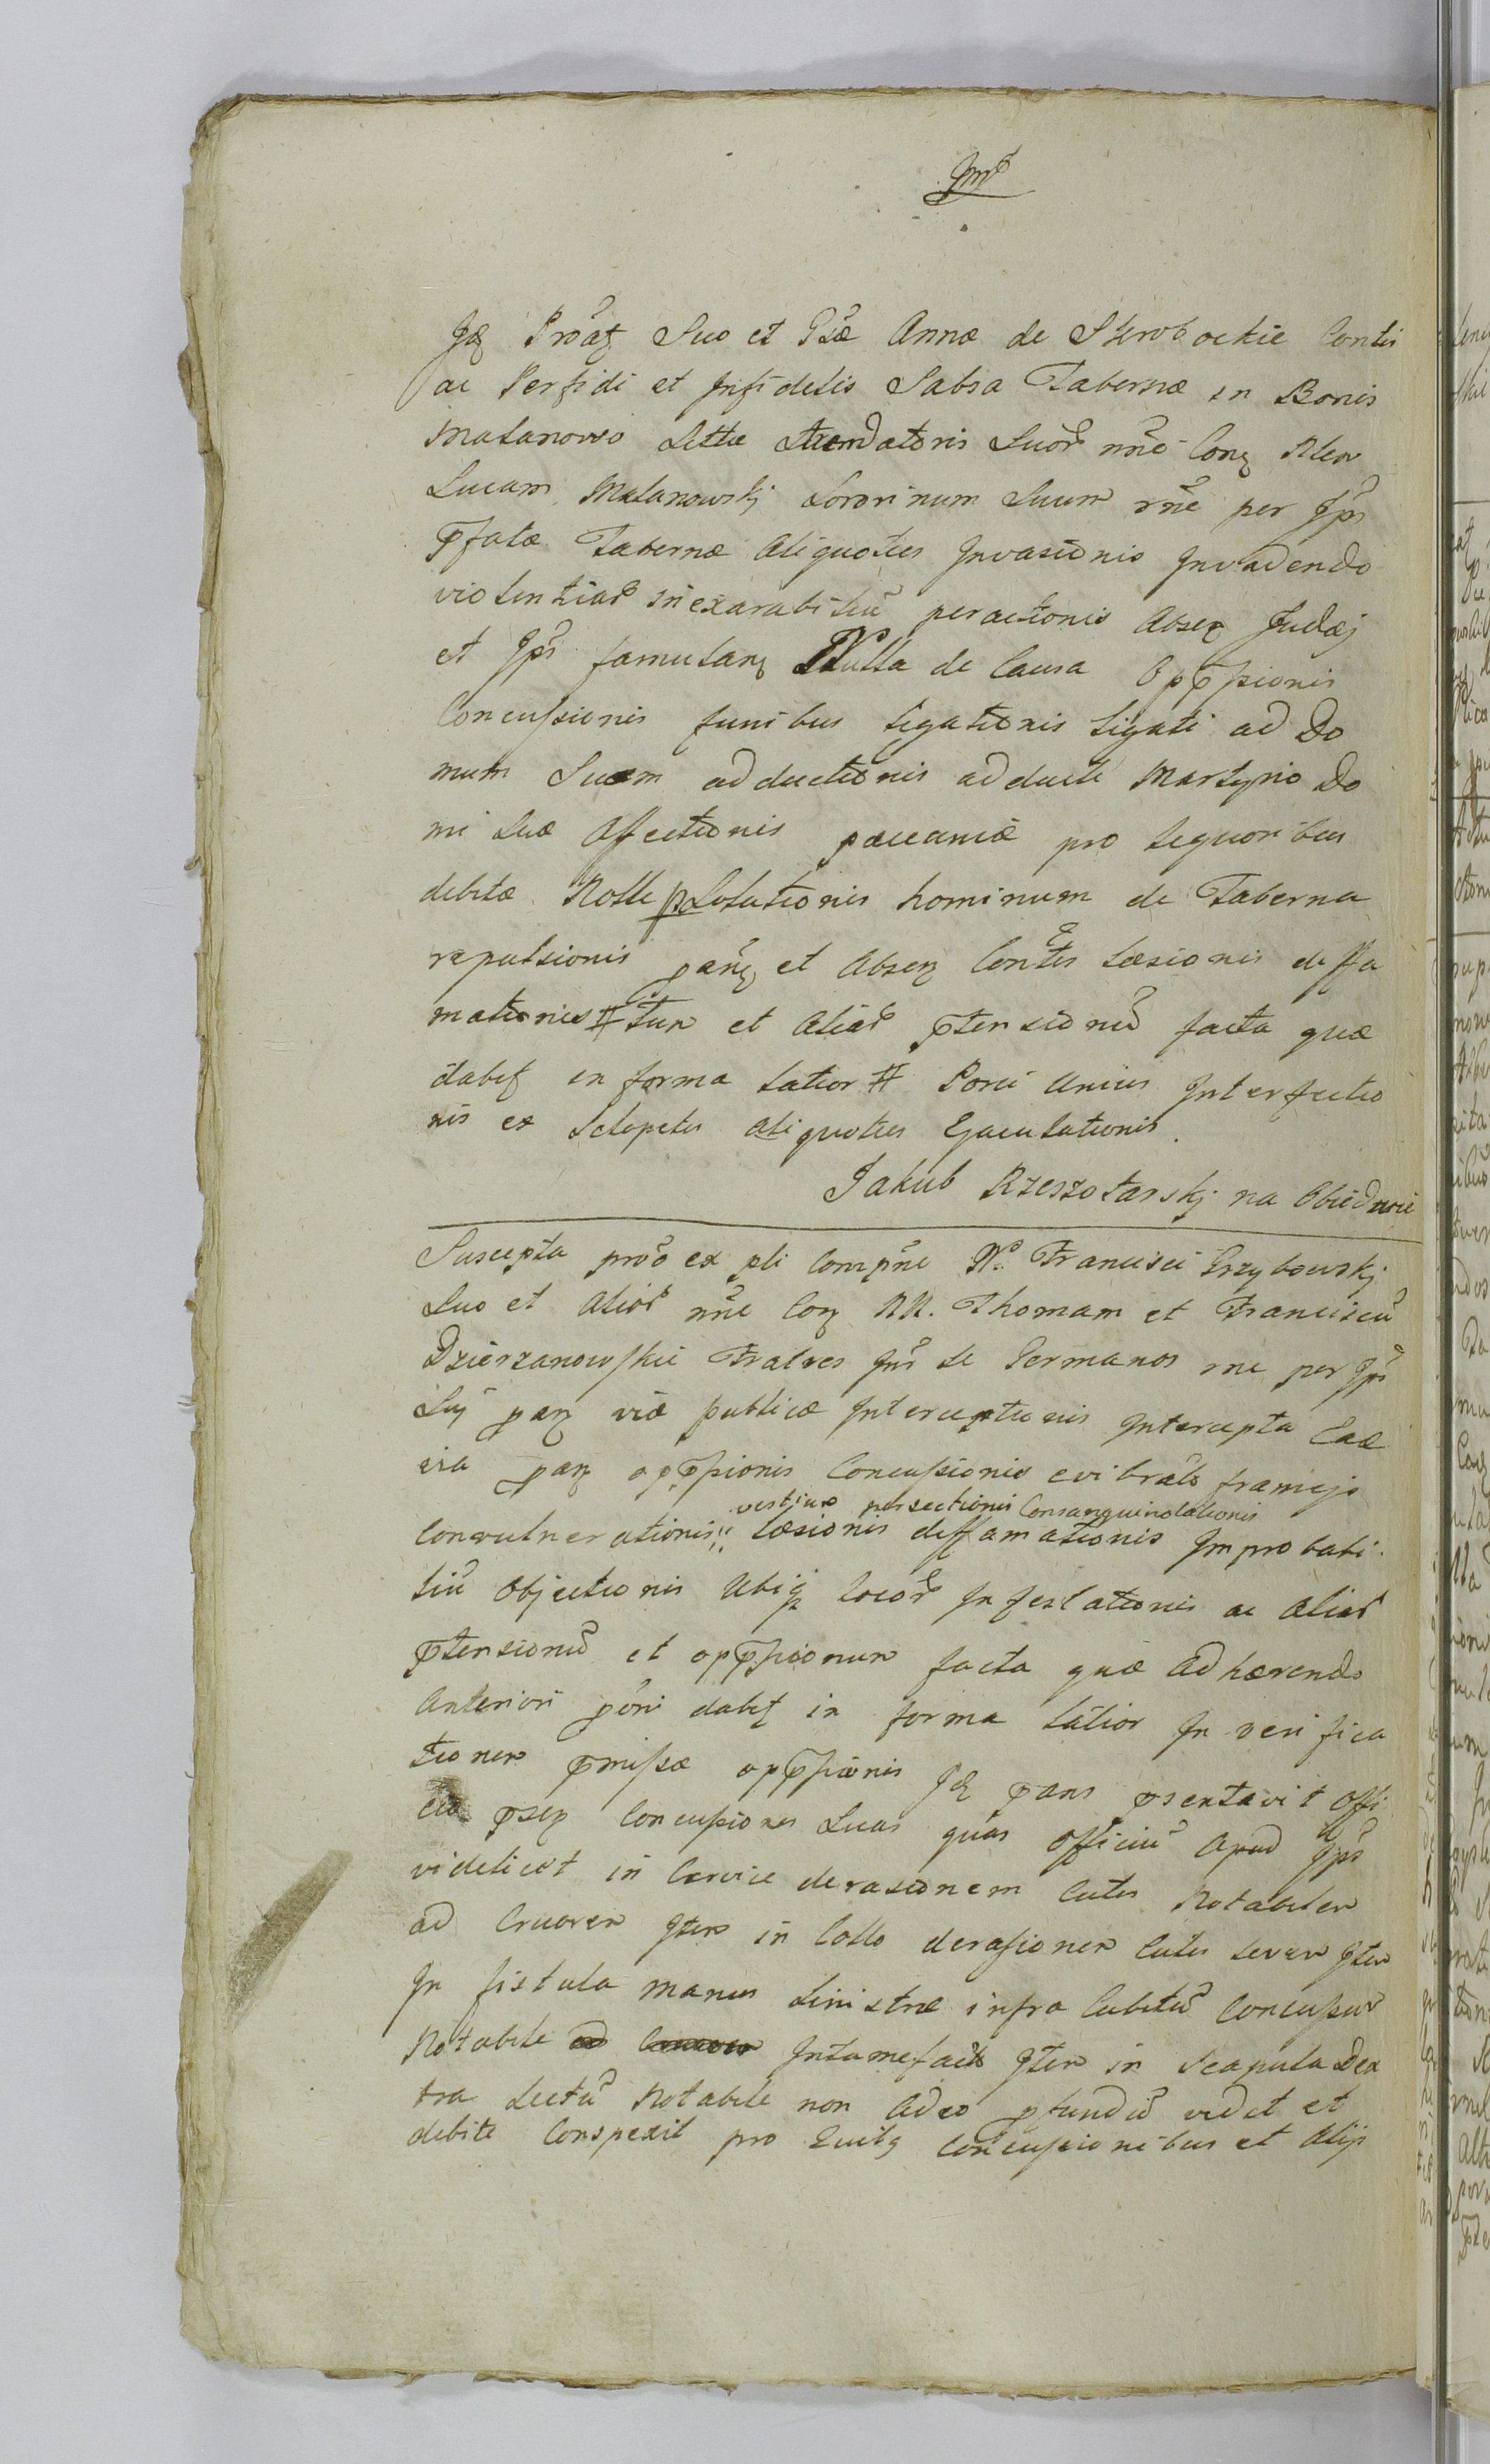 Jmo
Idem Proatq Suo et Gsæ Annæ de Skrobockie Contis
ac Perfidi et Infidelis Sabsa Tabernæ in Bonis
Malanowo Sittæ Arendatoris Suor nne Conq Nlem
Lucam Malanowskj Sororinum Suum rne per Ips
pfatæ Tabernæ Aliquoties Invasionis Invadendo
violentiar inexarabiliu peractionis Abseq Judæj
et Ips famulanq Nulla de Causa Oppssionis
Concussionis funibus ligationis ligati ad Do
mum Suam adductionis adducti Martyrio Do
mi Suæ Affectionis pæcuniæ pro liquoribus
debitæ Nolle pSolutionis hominum de Taberna
repulsionis panq et Absen Contis læsionis deffa
mationis # tum et Aliar ptensionu facta quæ
dabit in forma latior # Porci Unius Interfectio
nis ex Sclopetis Aliquoties Ejaculationis.
Jakub Rzeszotarskj na Obiednie
Suscepta pro ex pli Compne N. Francisci Grzybowskj
Suo et Alior nne Conq NN. Thomam et Franciscu
Dzierzanowskie Fratres Int se Germanos rne per Ips
Suj panq viæ publicæ Interceptionis Intercepta Eaæ
via panq oppssionis Concussionis evibrato frameje
Convulnerationis vestium persectionis Consanguinolationis læsionis deffamationis Improbabi
liu Objectionis Ubiq locor Infestationis ac Aliar
ptensionu et oppssionum facta quæ Adhærendo
Anteriori pōni dabit in forma latior In verifica
tionem pmissæ oppssionis Id pans psentavit Offi
cio psen Concussiones Suas quas Officiu Apud Ips
videlicet in Cervice derasionem Cutis Notabilem
ad Cruorem Item in Collo derasionem Cutis levem Item
In fistula manus Sinistræ infra Cubitu Concussum
Notabile ad Cruorem Intumefacto Item in Scapula Dex
tra Sectu Notabile non Adeo pfundu vidit et
debite Conspexit pro quibq Concussionibus et Alijs